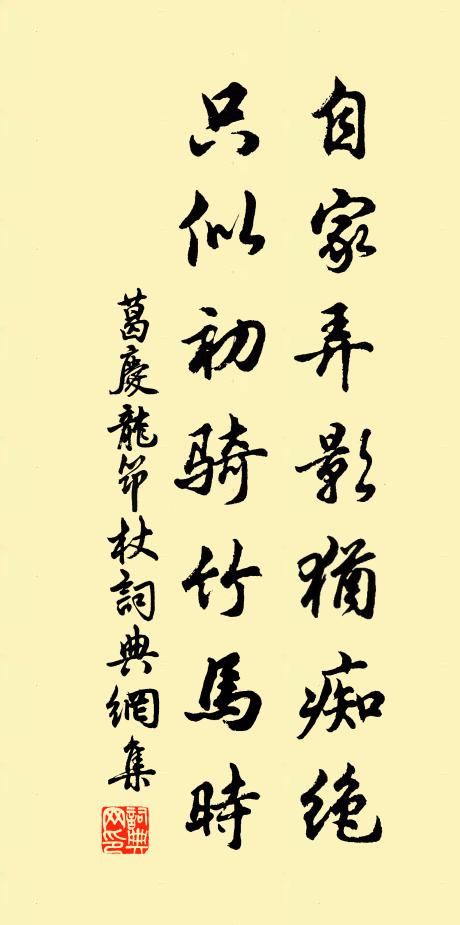 自家弄影猶痴绝
只似初骑竹馬時
葛慶龍節杖詞典網集
詞典网印